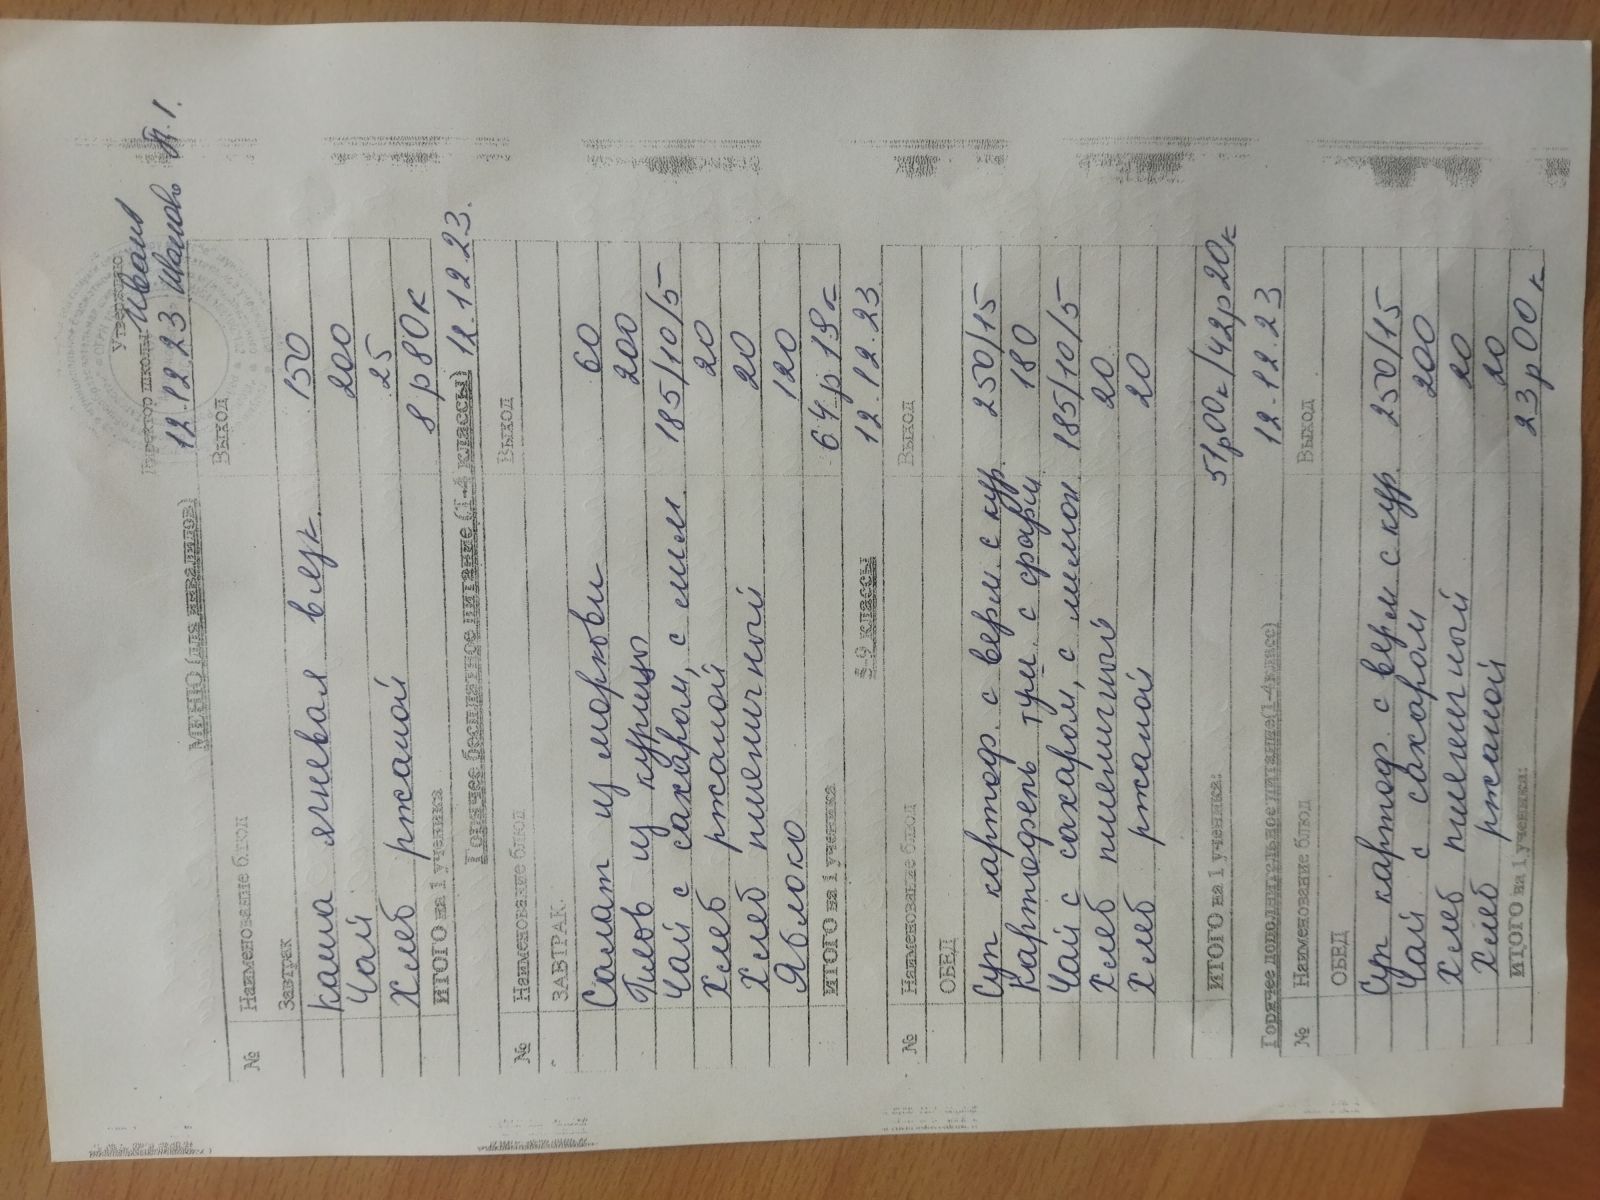 Утверждаю
Директор школы
12.12.23
МЕНЮ (для инвалидов)
№ Наименование блюд Выход
Завтрак
Каша ячневая вязк. 150
Чай 200
Хлеб ржаной 25
ИТОГО на 1 ученика 8р80к
Горячее бесплатное питание (1-4 классы) 12.12.23.
№ Наименование блюд Выход
ЗАВТРАК.
Салат из моркови 60
Плов из курицы 200
Чай с сахаром, с лим 185/10/5
Хлеб ржаной 20
Хлеб пшеничный 20
Яблоко 120
ИТОГО на 1 ученика 64р19к
5-9 классы 12.12.23
№ Наименование блюд Выход
ОБЕД
Суп картоф. с верм. с кур. 250/15
Картофель туш. с фрари 180
Чай с сахаром, с лимон 185/10/5
Хлеб пшеничный 20
Хлеб ржаной 20
ИТОГО на 1 ученика: 51р00к/42р20к
Горячее дополнительное питание(1-4класс) 12.12.23
№ Наименование блюд Выход
ОБЕД
Суп картоф. с верм с кур. 250/15
Чай с сахаром 200
Хлеб пшеничный 20
Хлеб ржаной 20
ИТОГО на 1 ученика: 23р00к